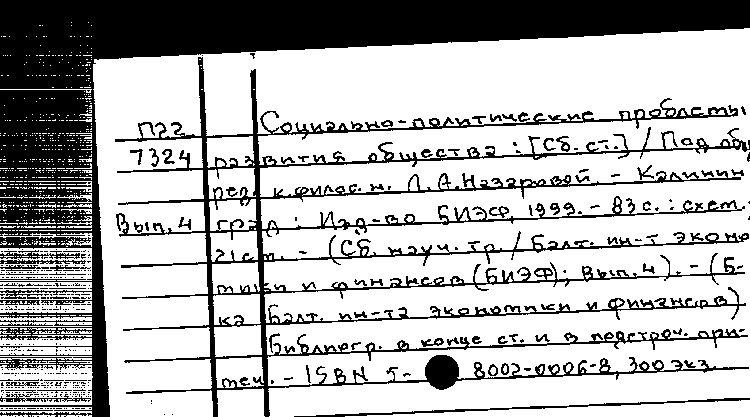 П22 Социально-политические проблемы
7324 развития общества : [Сб. ст.] / Под общ
ред. к.филос.н. Л.А.Назаровой. – Калинин
Вып.4 град : Изд-во БИЭФ, 1999. – 83 с. : схем.;
21см. – (Сб. науч. тр. / Балт. ин-т эконо
мики и финансов (БИЭФ); Вып.4). – (Б-
ка Балт. ин-та экономики и финансов).
Библиогр. в конце ст. и в подстроч. при-
меч. – ISBN 5- 8002-0006-8, 300 экз.